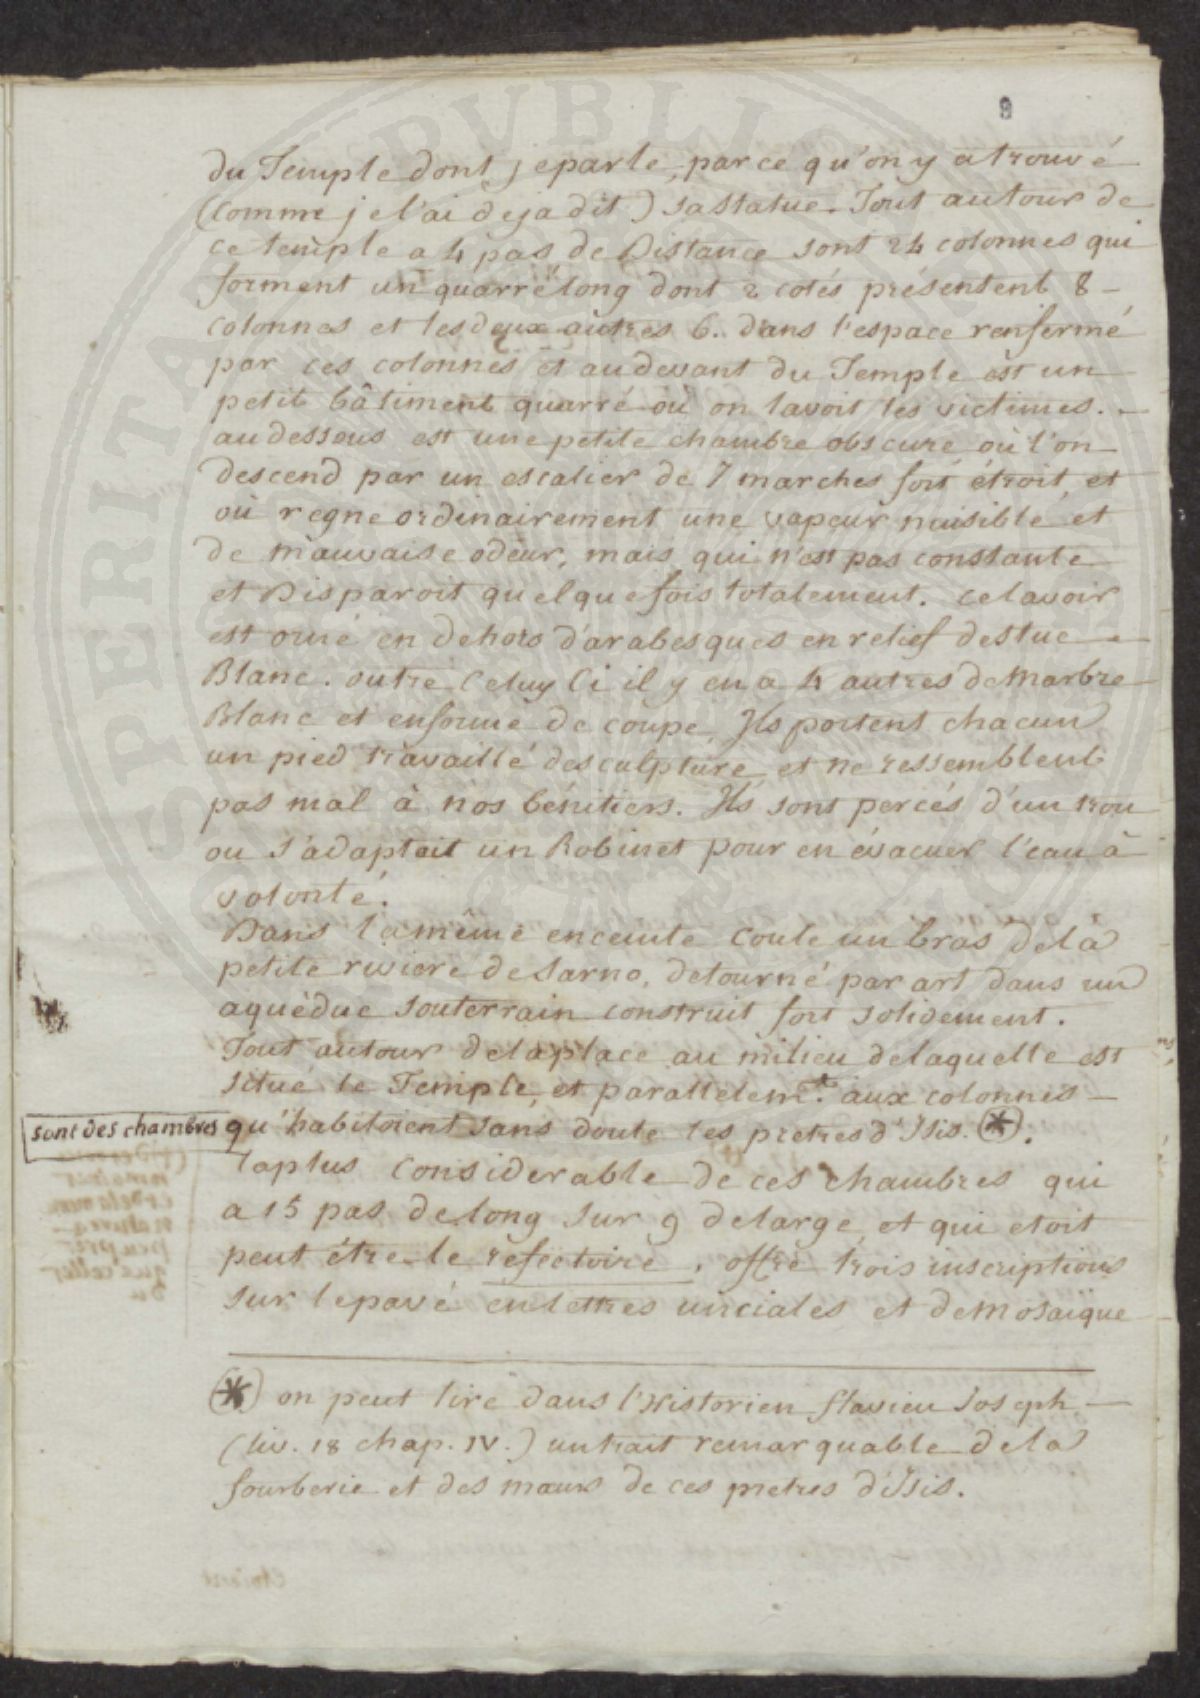 9
du Temple dont je parle, parce qu'on y a trouvé
(comme je l'ai deja dit) sa statue. Tout autour de
ce temple a 4 pas de Distance sont 24 colonnes qui
forment un quarré long dont 2 cotés présentent 8
colonnes et les deux autres 6. dans l'espace renfermé
par ces colonnes et au devant du Temple est un
petit bâtiment quarré où on lavoit les victimes.
au dessous est une petite chambre obscure où l'on
descend par un escalier de 7 marches fort étroit et
où regne ordinairement une vapeur nuisible et
de mauvaise odeur, mais qui n'est pas constante
et Disparoit quelque fois totalement. ce lavoir
est orné en dehors d'arabesques en relief de stuc
Blanc. outre celuy ci il y en a 4 autres de Marbre
Blanc et en forme de coupe. Ils portent chacun
un pied travaillé de sculpture et ne ressemblent
pas mal à nos bénitiers. Ils sont percés d'un trou
ou s'adaptait un Robinet pour en évacuer l'eau à
volonté.
Dans la même enceinte coule un bras de la
petite riviere de Sarno, detourné par art dans un
aquéduc souterrain construit fort solidement.
Tout autour de la place au milieu de laquelle est
situé le Temple, et parallelemt. aux colonnes
sont des chambres qu'habitoient sans doute les pretres d'Isis. (*).
la plus considerable de ces chambres qui
a 15 pas de long sur 9 de large et qui etoit
peut être le refectoire, offre trois inscriptions
sur le pavé en lettres unciales et de Mosaïque
(*) on peut lire dans l'Historien flavien Joseph
(liv. 18 chap. IV.) un trait remarquable de la
fourberie et des mœurs de ces pretres d'Isis.